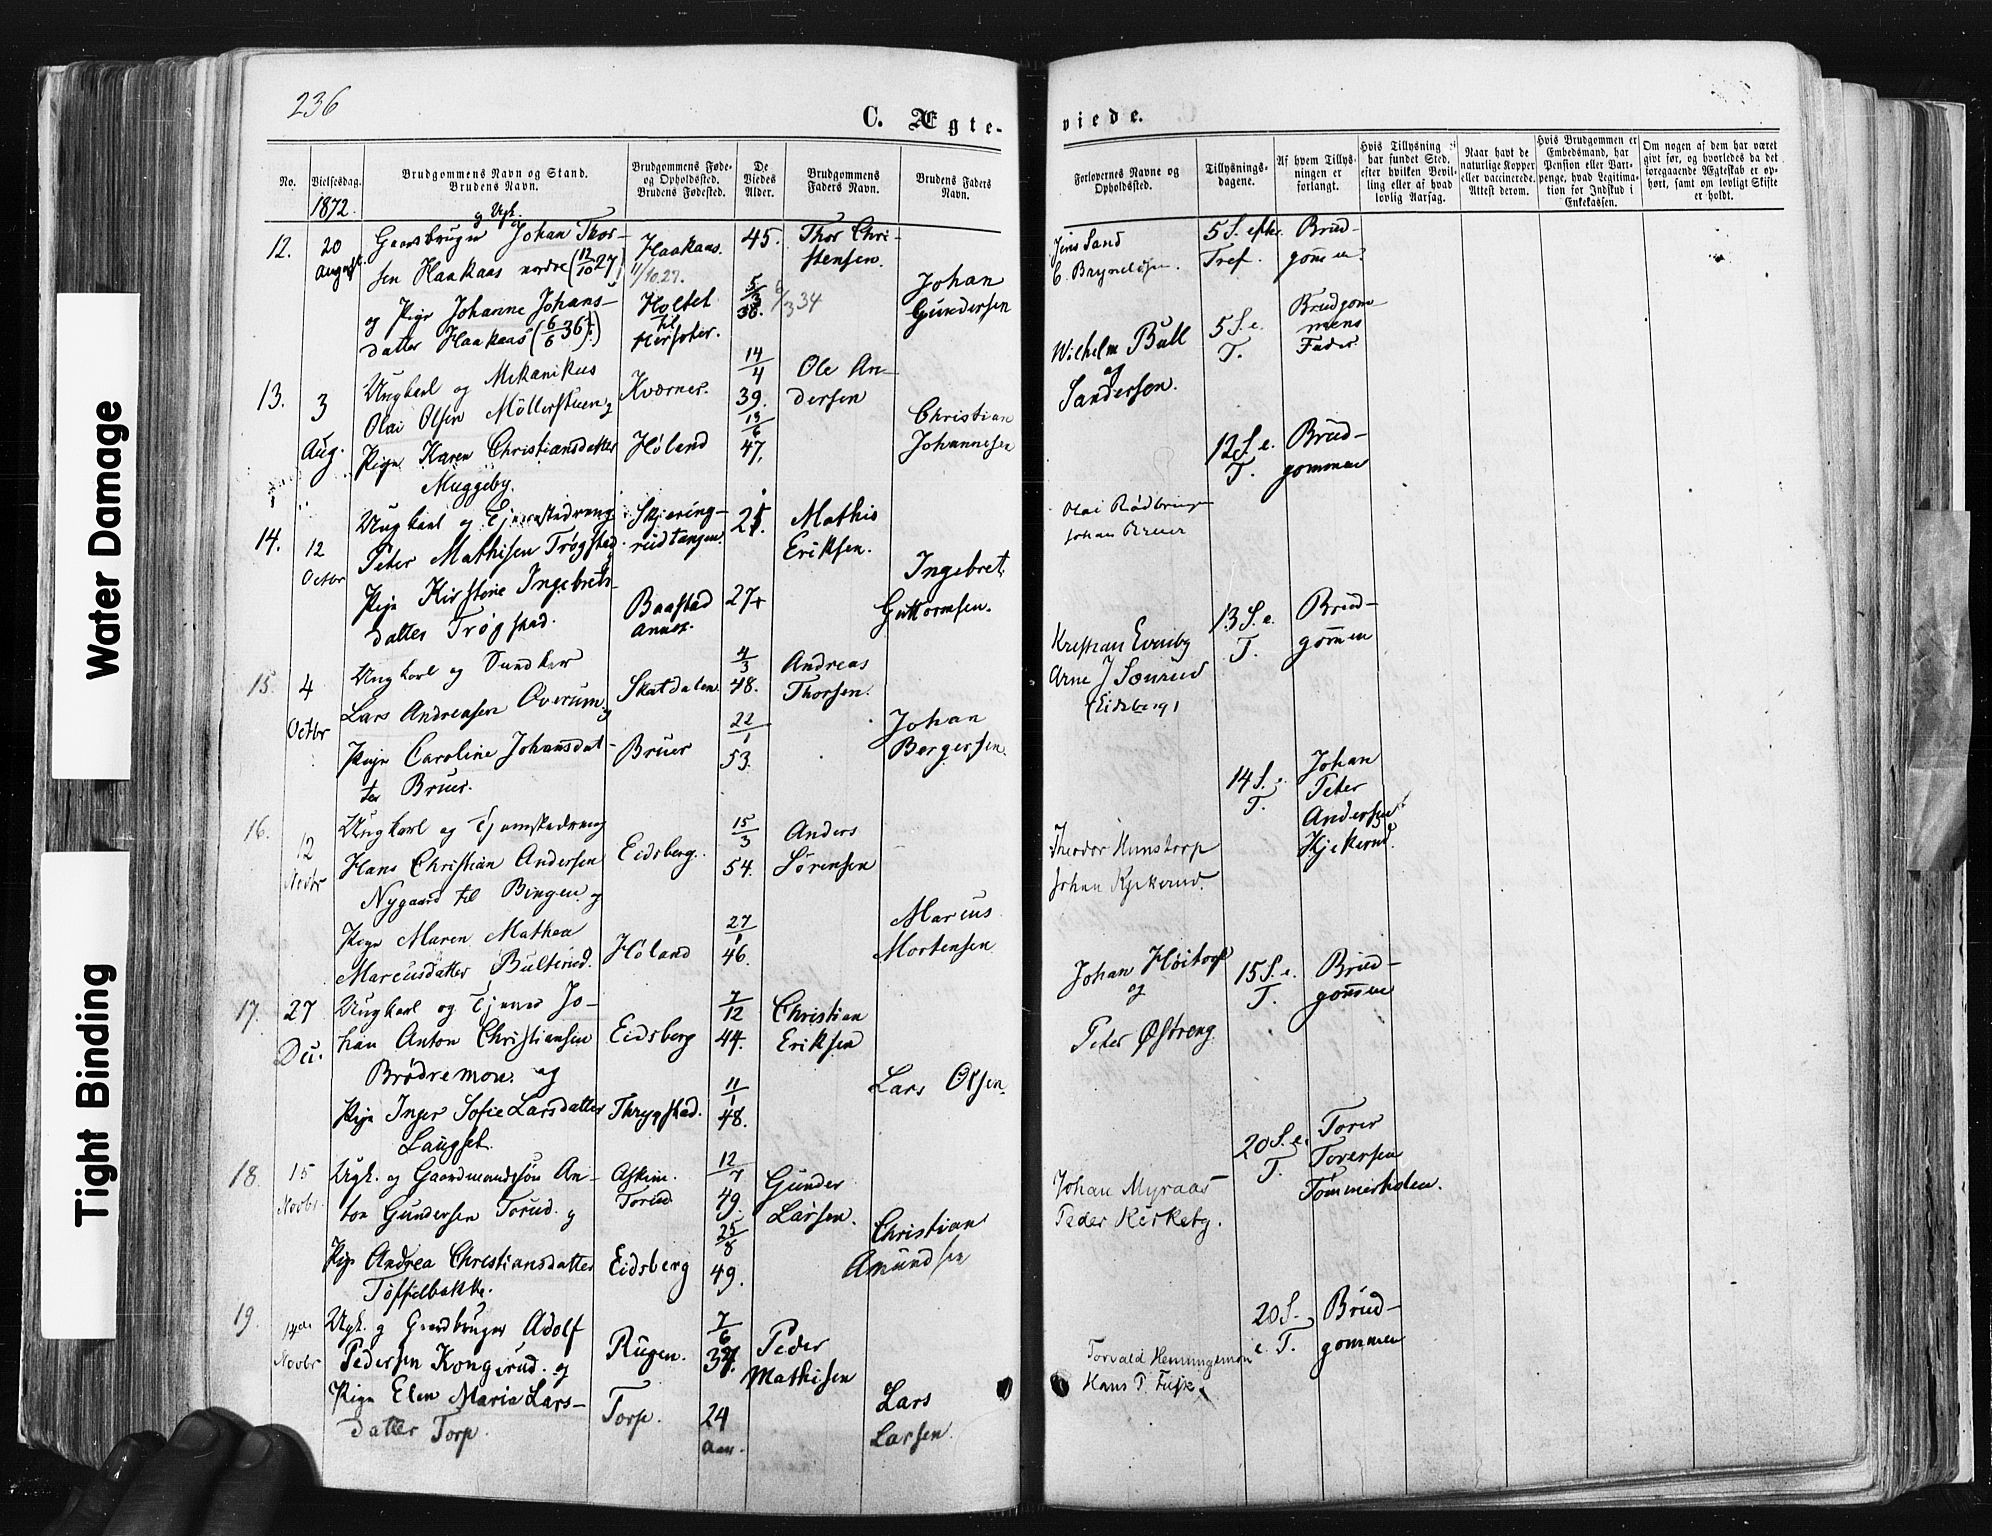 236
C. Ægte-
viede.
No.
Vielsesdag.
1872.
Brudgommens Navn og Stand.
Brudens Navn.
Brudgommens Føde-
og Opholdssted.
Brudens Fødested.
De
Viedes
Alder.
Brudgommens
Faders Navn.
Brudens Faders
Navn.
Forlovernes Navne og
Opholdssted.
Tillysnings-
dagene.
Af hvem Tillys-
ningen er
forlangt.
Hvis Tillysning ei
har fundet Sted,
efter hvilken Bevil-
ling eller af hvad
lovlig Aarsag.
Naar havt de
naturlige Kopper
eller vaccinerede.
Attest derom.
Hvis Brudgommen er
Embedsmand, har
Pension eller Vart-
penge, hvad Legitima-
tion for Indskud i
Enkekassen.
Om nogen af dem har været
gift før, og hvorledes da det
foregaaende Ægteskab er op-
hørt, samt om lovligt Skifte
er holdt.
12.
20
August
Gaardbruger Johan Thor-
sen Haakaas nordre (12/10 27)
og Pige Johanne Johans-
datter Haakaas (6/6 36)
Haakaas.
11/10.27.
Holtet
til
45.
5/3
38.
6/3 34
Thor Chri-
stensen.
Johan
Gundersen
Jens Sand
5 S. efter
Tref.
Brud-
gommen
13.
3
Aug.
Ungkarl og Mekanikus
Olai Olsen Möllerstuen og
Pige Karen Christiansdatter
Muggeby.
Kværner.
Höland
14/4
39.
13/6
47.
Ole An-
dersen
Christian
Johannesen
Wilhelm Bull
og
Sandersen.
5 S. e.
T.
Brudgom
mens
Fader.
14.
12
Octbr
Ungkarl og Tjenestedreng
Peter Mathisen Trøgstad
Pige Kirstine Ingebrets-
datter Trøgstad.
Skjering-
rudtangen.
Baastad
Annex.
25.
27
Mathis
Eriksen.
Ingebret
Guttormsen.
12 S. e.
T.
Brud-
gommen
15.
4
Octbr
Ungkarl og
Lars Andreasen Overum og
Pige Caroline Johansdat-
ter Bruer.
Skatdalen
Bruer
4/3
48.
22/1
53.
Andreas
Thorsen.
Johan
Bergersen.
Arne J
(Eidsberg)
13 S. e.
T.
Brud-
gommen
16.
12
Novbr
Ungkarl og Tjenestedreng
Hans Christian Andersen
Nygaard til Bingen og
Pige Maren Mathea
Marcusdatter Bulterud.
Eidsberg.
Höland
15/3
54.
27/1
46.
Anders
Sörensen
Marcus
Mortensen
Theodor
Johan Kjekerud.
14 S. e.
T.
Johan
Peter
Andersen
Kjekerud.
17.
27
Dec.
Ungkarl og Tjener Jo-
han Anton Christiansen
Brödremon og
Pige Inger Sofie Larsdatter
Laugset.
Eidsberg
Thrygstad.
7/12
44.
11/1
48.
Christian
Eriksen
Lars Olsen.
Johan Höitorp
og
Peter Østreng
15 S. e.
T.
Brud-
gommen
18.
15
Novbr.
Ugk. og Gaardmandssön An-
ton Gundersen Torud. og
Pige Andrea Christiansdatter
Töffelbakke.
Askim.
Torud.
Eidsberg
12/7
49.
25/8
49.
Gunder
Larsen.
Christian
Amundsen
Johan Myraas
Peder Kirkeby.
20 S. e.
T.
Torer
Toversen
Tommerholen.
19.
14de
Novbr
Ugk. og Gaardbruger Adolf
Pedersen Kongsrud. og
Pige Elen Maria Lars-
datter Torp.
Torp.
7/6
24
Aar.
Peder
Mathisen
Lars
Larsen.
Torvald Hemmingsmoen
20 S.
e. T.
Brud-
gommen
Water Damage
Tight Binding